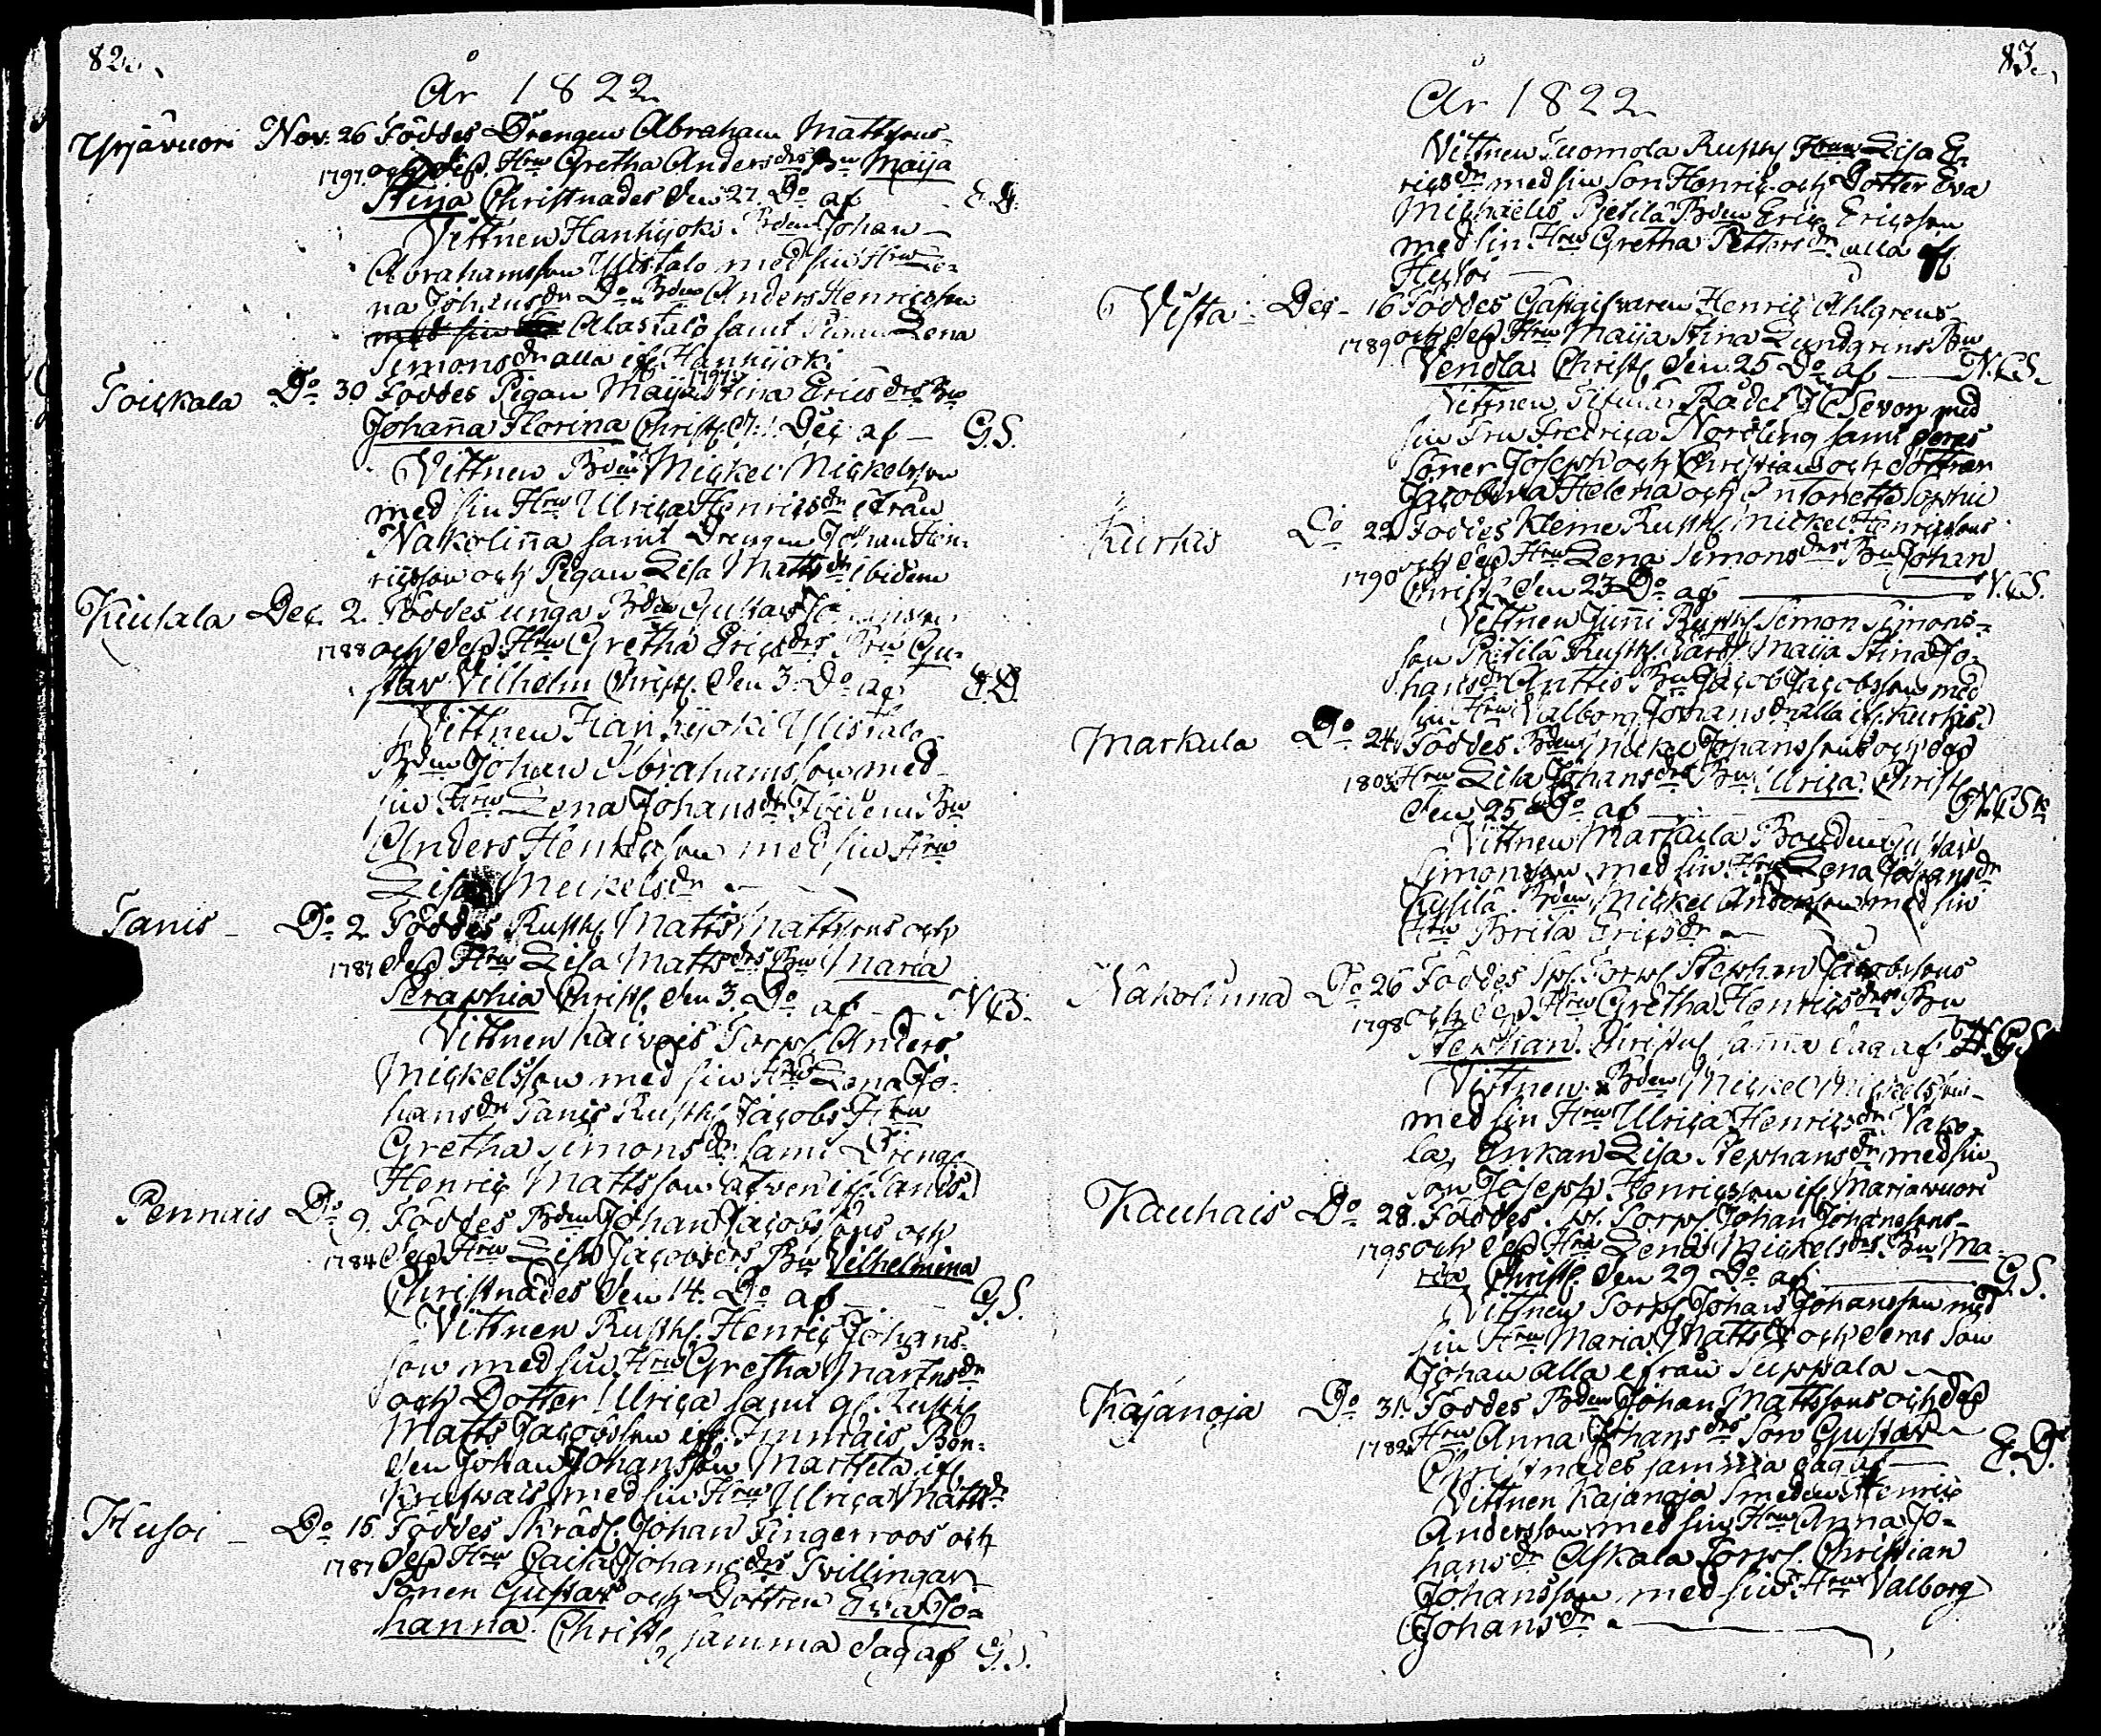 82.
År 1822
Yrjävuori Nov. 26 Föddes Drengen Abraham Mattssons
1797. och dess Hru Gretha Andersdrs Bn Maija
Stina Christnades den 27. Do af E.D.
Vittnen Hankijoki Bden Johan
Abrahamsson Ylistalo med sin Hru Le-
na Johansdr Do Bden Anders Henricsson
Alastalo samt Lena
Simonsdr alla if. Hankijoki
Toickala Do 30 Föddes Pigan Maija Stina Ericsdrs Bn
Johanna Florina Christs d. 1. Dec af G.S.
Vittnen Bden Mickel Mickelsson
med sin Hru Ulrica Henricsdr ifrån
Nakolinna samt Drengen Johan Hen-
ricsson och Pigan Lisa Mattsdr ibidem
Kiusala Dec. 2. Föddes unga Bden Gustaf
1788 och dess Hru Gretha Ericsdrs Bn Gu-
stav Vilhelm Christs. den 3 Do af E.D.
Vittnen Hankijoki Ylistalo
Bden Johan Abrahamsson med
sin Hru Lena Johansdr Ibidem Bn
Anders Henricsson med sin Hru
Lisa Meikelsdr
Tanis Do 2. Föddes Rusth. Matts Mattssons och
1787 dess Hru Lisa Mattsdrs Bn Maria
Seraphia Christs. den 3. Do af N.C.S.
Vittnen Kaivois Torps Anders
Mickelsson med sin Hru Lena Jo-
hansdr Tanis Rusth. Jacobs Hru
Gretha Simonsdr samt Dreng.
Henric Mattsson äfven if. Tanis
Pennais Do 9. Föddes Bden Johan Jacobssons och
1784 dess Hru Lisa Jacobsdrs Bn Vilhelmina
Christnades den 14. Do af G.S.
Vittnen Rusth. Henric Johans-
son med sin Hru Gretha Martinsdr
och Dotter Ulrica samt gl. Rusth.
Matts Jacobsson if. Junnais Bon-
den Johan Johansson Marttela if.
med sin Hru Ulrica Mattsdr
Husoi Do 15. Föddes Skräd. Johan Fingerroos och
1787 dess Hru Caisa Johansdrs Tvillingar
Sonen Gustav och Dottren Eva Jo-
hanna. Christs samma dag af G.S.
83.
År 1822
Vittnen Tuomola Rusth. Hru Lisa E-
ricsdr med sin Son Henric och Dotter Eva
Michaelis Pietilä Bden Eric Ericsson
med sin Hru Gretha Pettersdr alla if.
Husoi
Vista Dec. 16 Föddes Gästgifvaren Henric Ahlgrens
1789 och dess Hru Maija Stina Lundgrens Bn
Vendla Christs den 25 Do af N.C.S.
Vittnen Titulär Rådet Sevon med
sin Fru Fredrica Nordling samt deras
Söner Joseph och Christian och döttrar
Jacobina Helena och Antonetta Sophia
Kurkis Do 22 Föddes Kleme Rusth. Mickel Henricssons
1790 och dess Hru Lena Simonsdrs Bn Johan
Christs den 23 Do af N.C.S.
Vittnen Junni Rusth. Simon Simons-
son Pietilä Rusth. Maija Stina Jo-
hansdr Anttis Bn Jacob Jacobsson med
sin Hru Valborg Johansdr alla if. Kurkis
Markula Do 24. Föddes Bden Mickel Johanssons och dess
1803 Hru Lisa Johansdrs Bn Ulrica Christs
den 25 Do af N.C.S.
Vittnen Markula Bonden Gustav
Simonsson med sin Hru Lena Johansdr
Bden Mickel Andersson med sin
Hru Brita Ericsdr
Nakolinna Do 26 Föddes Torps Stephan Jacobssons
1798 och dess Hru Gretha Henricsdrs Bn
Stephan. Christs samma dag af
Vittnen. Bden Mickel Mickelsson
med sin Hru Ulrica Henricsdr
Enkan Lisa Stephansdr med sin
Son Joseph Henricsson if. Marjavuori
Kauhais Do 28. Föddes. Torps Johan Johanssons
1795 och dess Hru Lena Mickelsdrs Bn Ma-
ria Christs. den 29 Do af G.S.
Vittnen Torps Johan Johansson med
sin Hru Maria Mattsdr och deras Son
Johan alla ifrån Suppala
Kajanoja Do 31. Föddes Bden Johan Mattssons och dess
1782 Hru Anna Johansdrs Son Gustav
Christnades samma dag af E.D.
Vittnen Kajanoja Smeden Henric
Andersson med sin Hru Anna Jo-
hansdr Askala Torps. Christian
Johansson med sin Hru Valborg
Johansdr